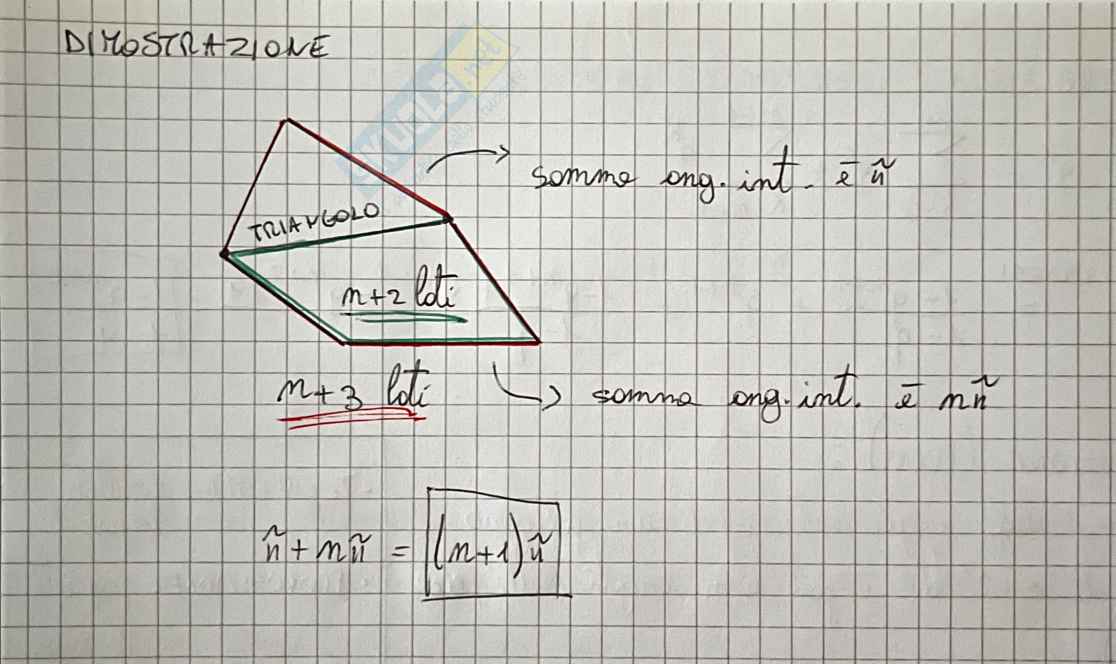 DIMOSTRAZIONE
SKUOLA.net
somma ang. int. è π̃
TRIANGOLO
n+2 lati
n+3 lati
somma ang. int. è nπ̃
π̃ + nπ̃ = (n+1)π̃